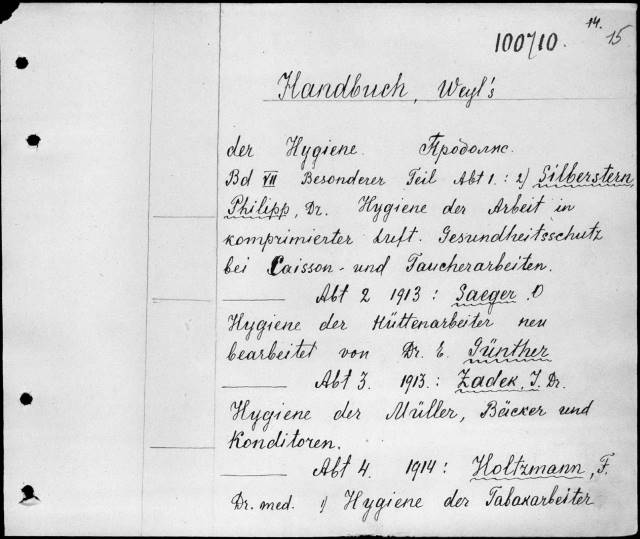 14.
15
100710.
Handbuch, Weyl's
der Hygiene. Продолж.
Bd VII Besonderer Teil Abt 1. : 2) Silberstern,
Philipp, Dr. Hygiene der Arbeit in
komprimierter Luft. Gesundheitsschutz
bei Caisson- und Taucherarbeiten.
——— Abt 2 1913 : Saeger O
Hygiene der Hüttenarbeiter neu
bearbeitet von Dr. E. Günther
——— Abt 3. 1913. : Zadek, J. Dr.
Hygiene der Müller, Bäcker und
Konditoren.
——— Abt 4. 1914 : Holtzmann, F.
Dr. med. 1) Hygiene der Tabakarbeiter